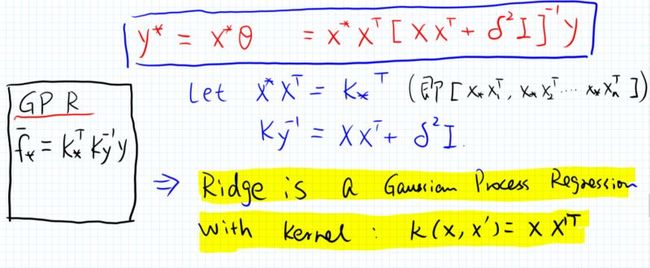 y* = x*θ = x* X^T [ X X^T + δ² I ]^-1 y
Let x* X^T = K*^T (即 [ x* x₁^T, x* x₂^T ... x* xₙ^T ])
Ky^-1 = X X^T + δ² I.
GP R
f̄* = K*^T Ky^-1 y
⇒ Ridge is a Gaussian Process Regression
with kernel : k(x, x') = x x'^T